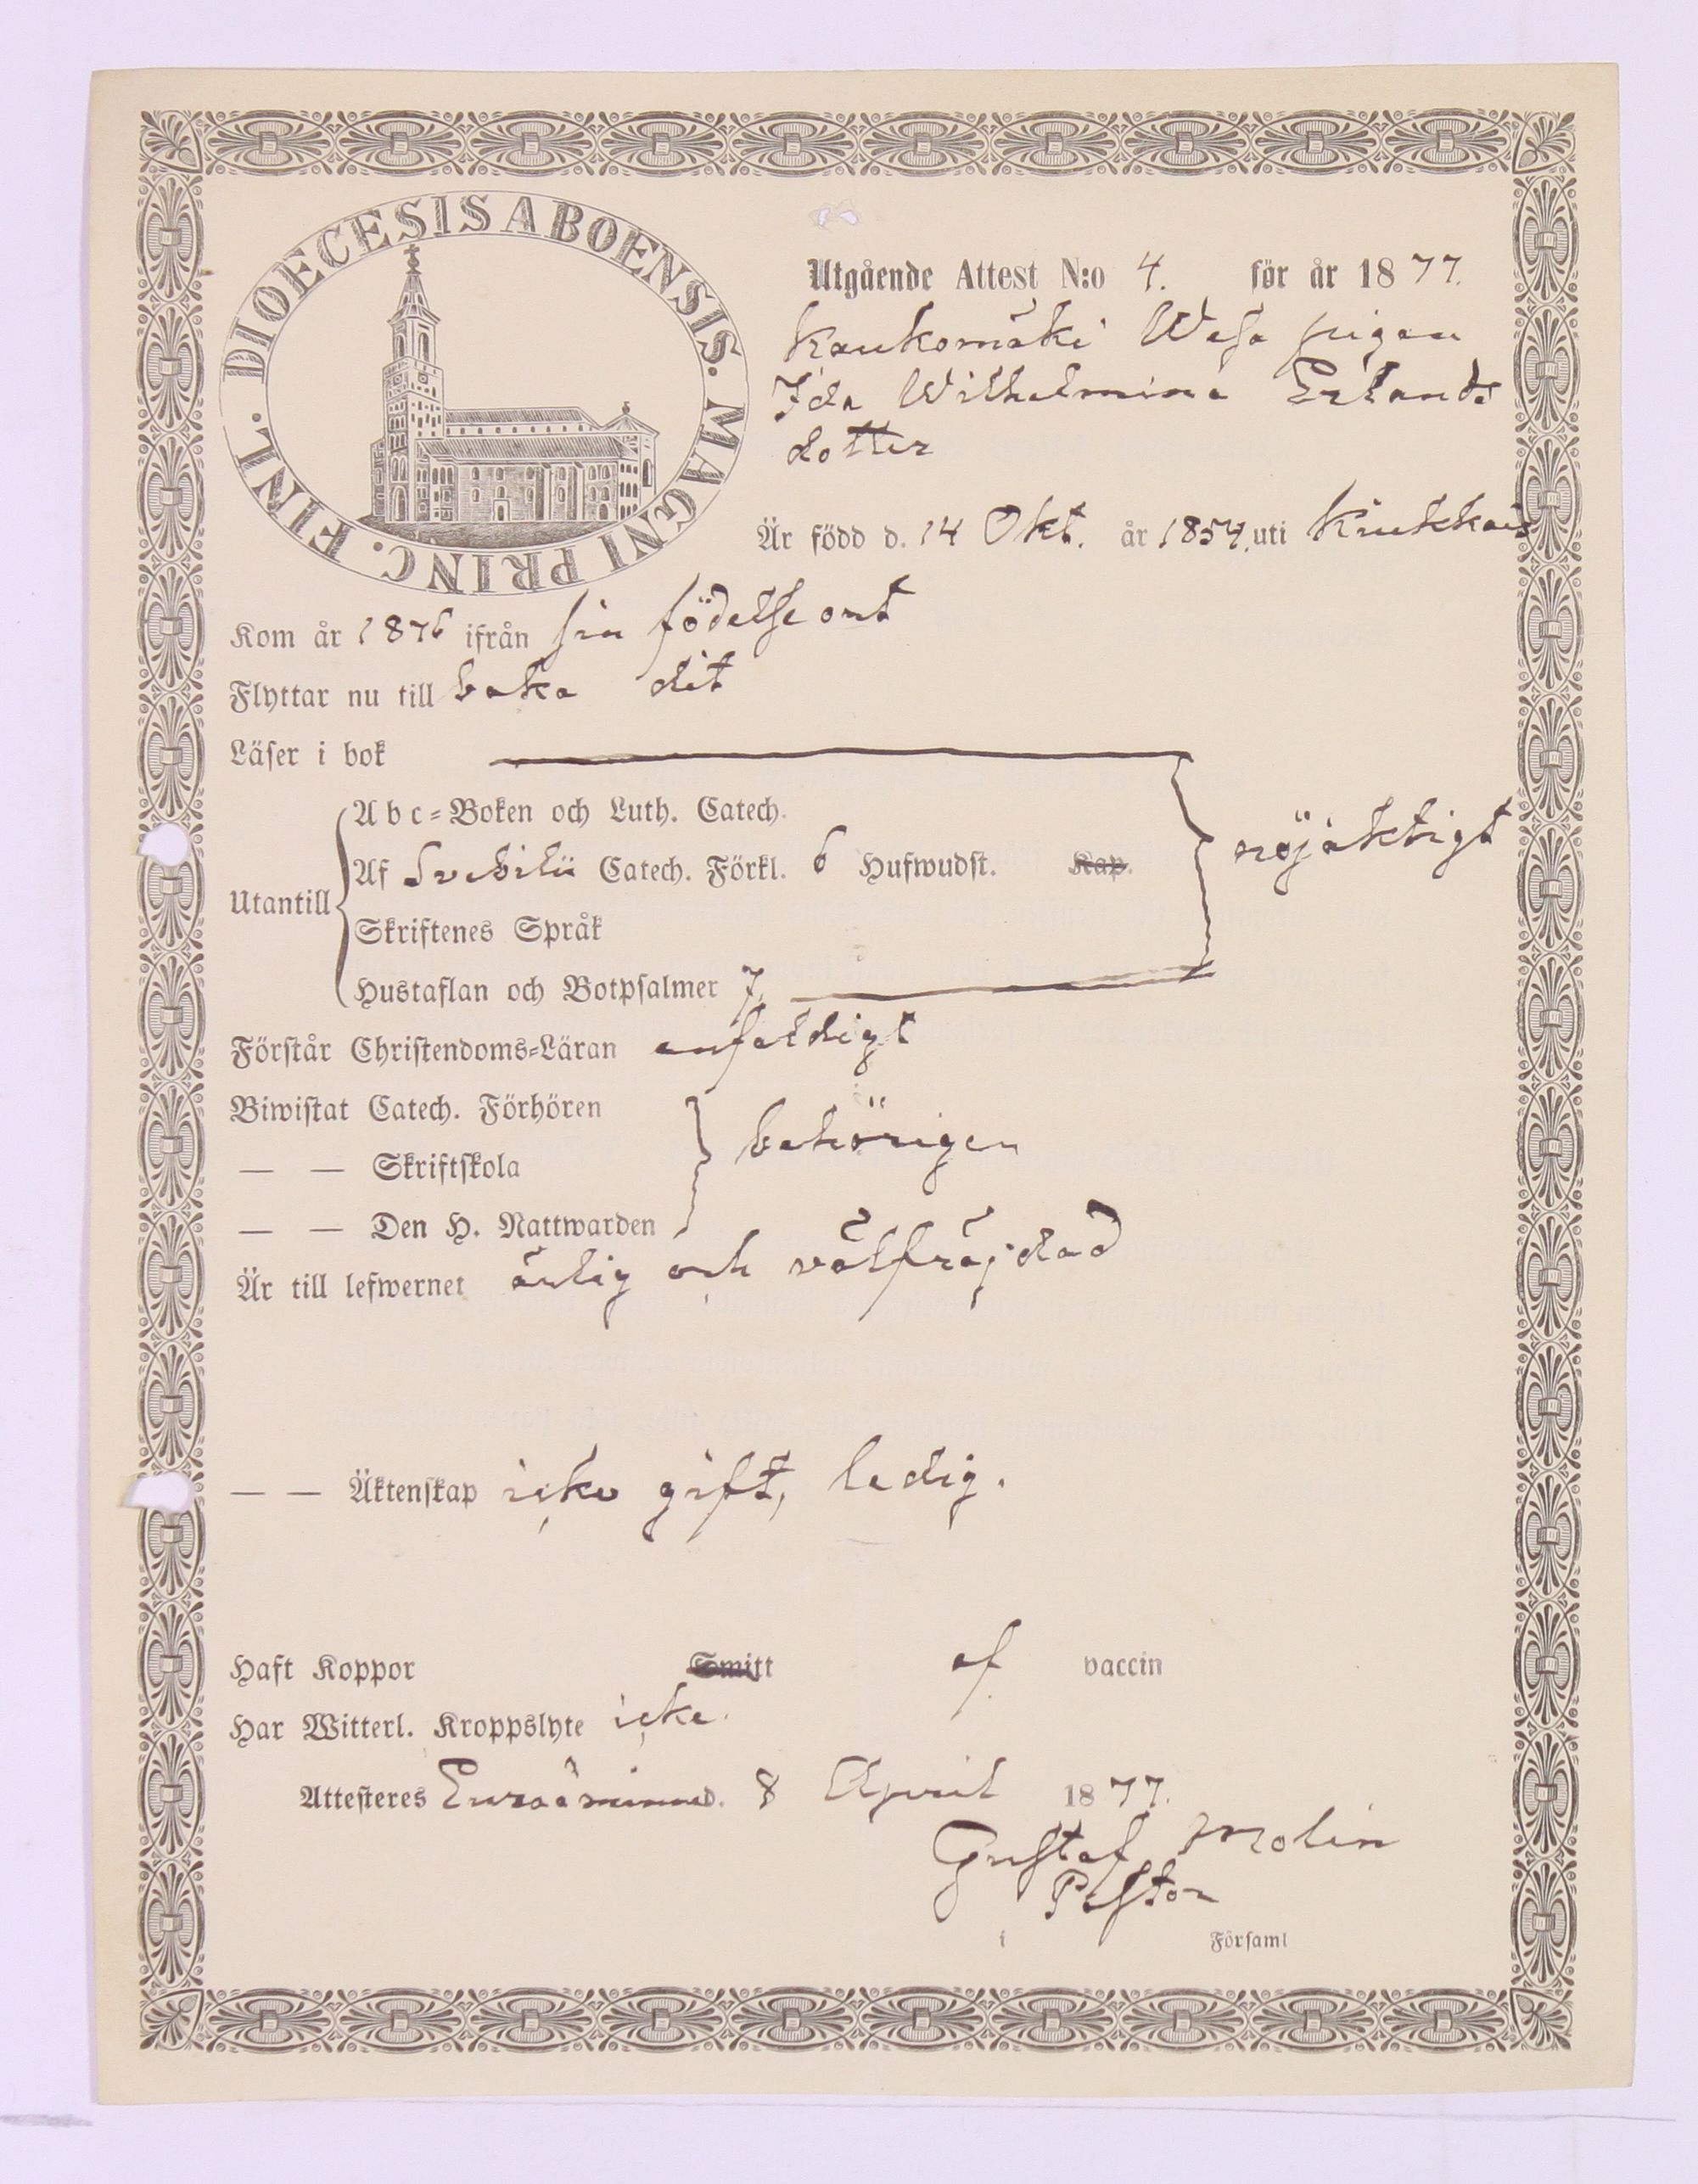 DIOECESIS ABOENSIS. MAGNI PRINC. FINL.
Utgående Attest N:o 4. för år 1877.
Kaukomäki Wesa pigan
Ida Wilhelmina Erlands
dotter
Är född d. 14 Okt. år 1854. uti Kiukkais
Kom år 1876 ifrån sin födelse ort
Flyttar nu till baka dit
Läser i bok
Utantill
Abc-Boken och Luth. Catech.
Af Svebilii Catech. Förkl. 6 Hufwudst. Kap.
nöjaktigt
Skriftenes Språk
Hustaflan och Botpsalmer 7.
Förstår Christendoms-Läran enfaldigt
Biwistat Catech. Förhören
— — Skriftskola
behörigen
— — Den H. Nattwarden
Är till lefwernet ärlig och välfräjdad
— — Äktenskap icke gift, ledig.
Haft Koppor Smitt af vaccin
Har Witterl. Kroppslyte icke.
Attesteres Euraåminne d. 8 April 1877.
Gustaf Molin
Pastor
i Församl